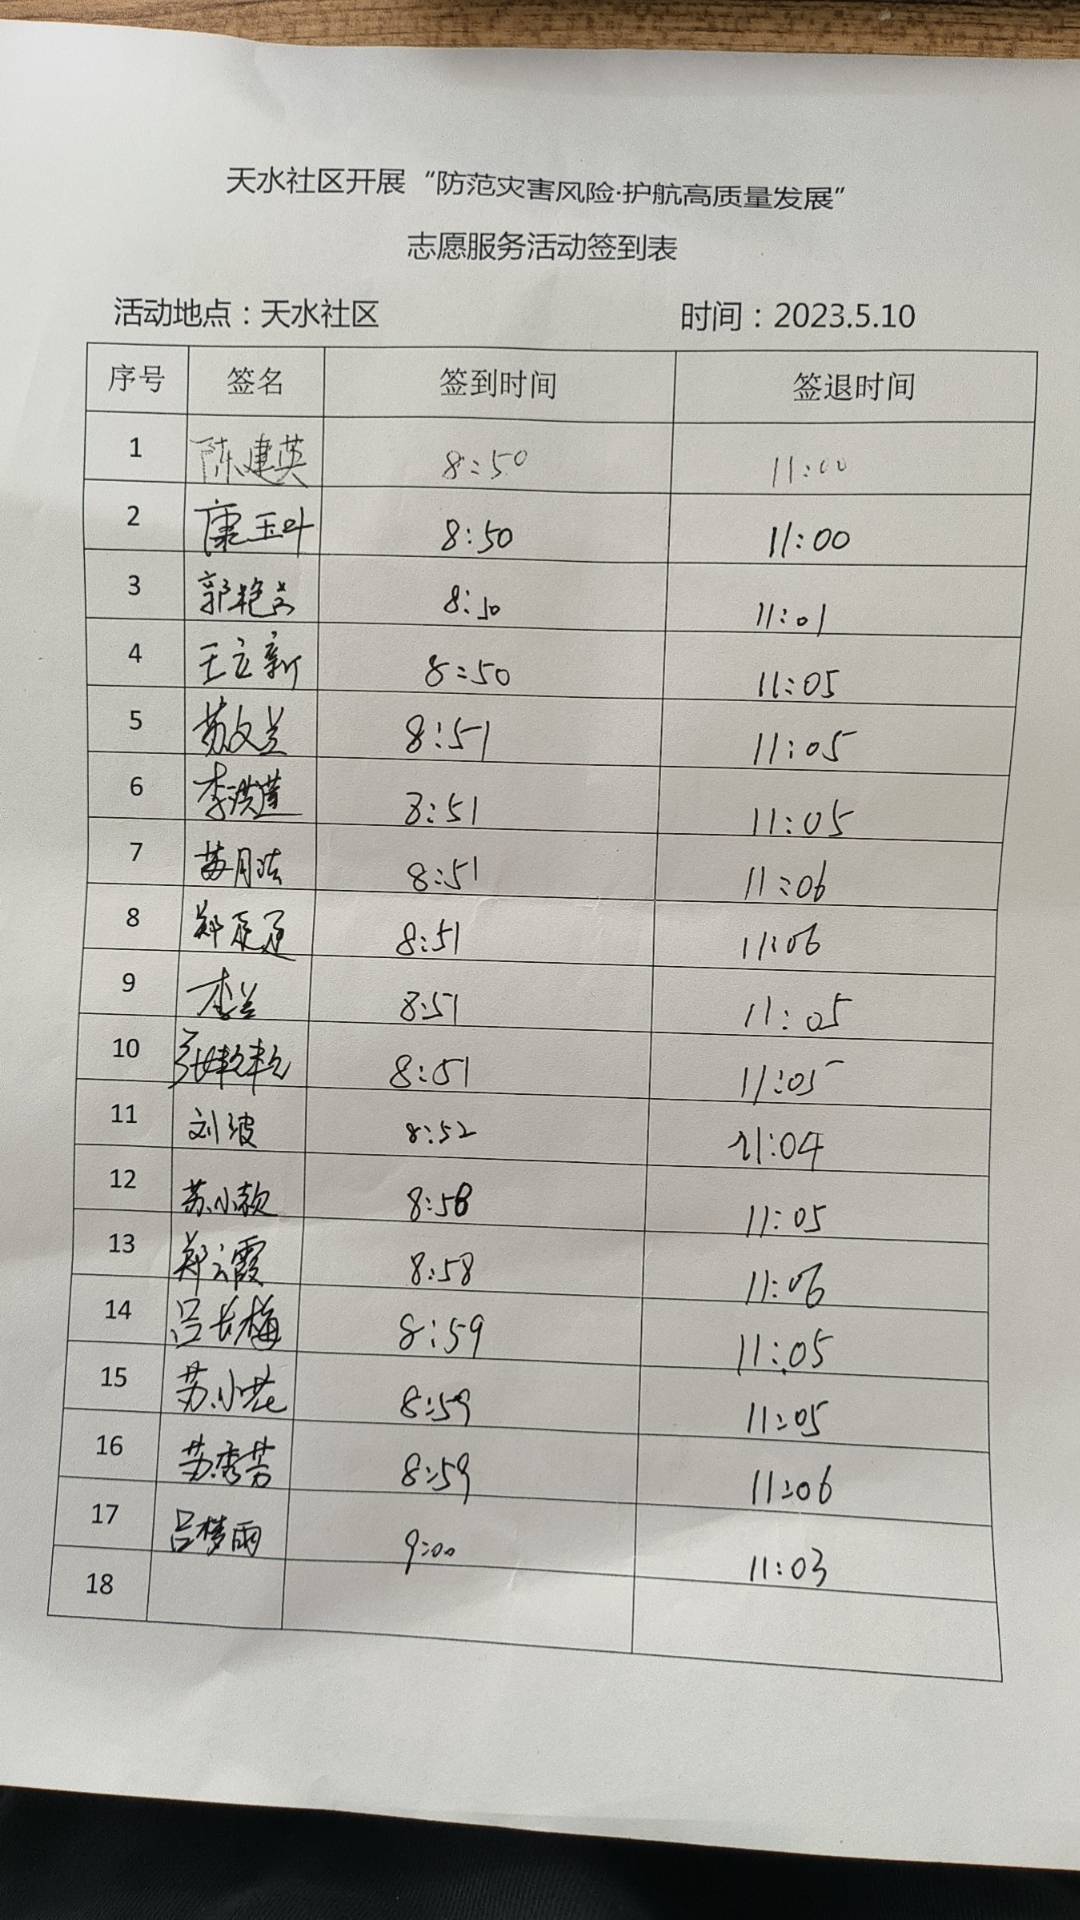 天水社区开展“防范灾害风险·护航高质量发展”
志愿服务活动签到表
活动地点：天水社区 时间：2023.5.10
序号 签名 签到时间 签退时间
1 陈建英 8:50 11:00
2 康玉叶 8:50 11:00
3 郭艳 8:50 11:01
4 王立新 8:50 11:05
5 苏文兰 8:51 11:05
6 李洪莲 8:51 11:05
7 苏月 8:51 11:06
8 郑 8:51 11:06
9 李兰 8:51 11:05
10 张 8:51 11:05
11 刘波 8:52 11:04
12 苏小款 8:58 11:05
13 郑云霞 8:58 11:06
14 吕长梅 8:59 11:05
15 苏小花 8:59 11:05
16 苏秀芳 8:59 11:06
17 吕梦雨 9:00 11:03
18